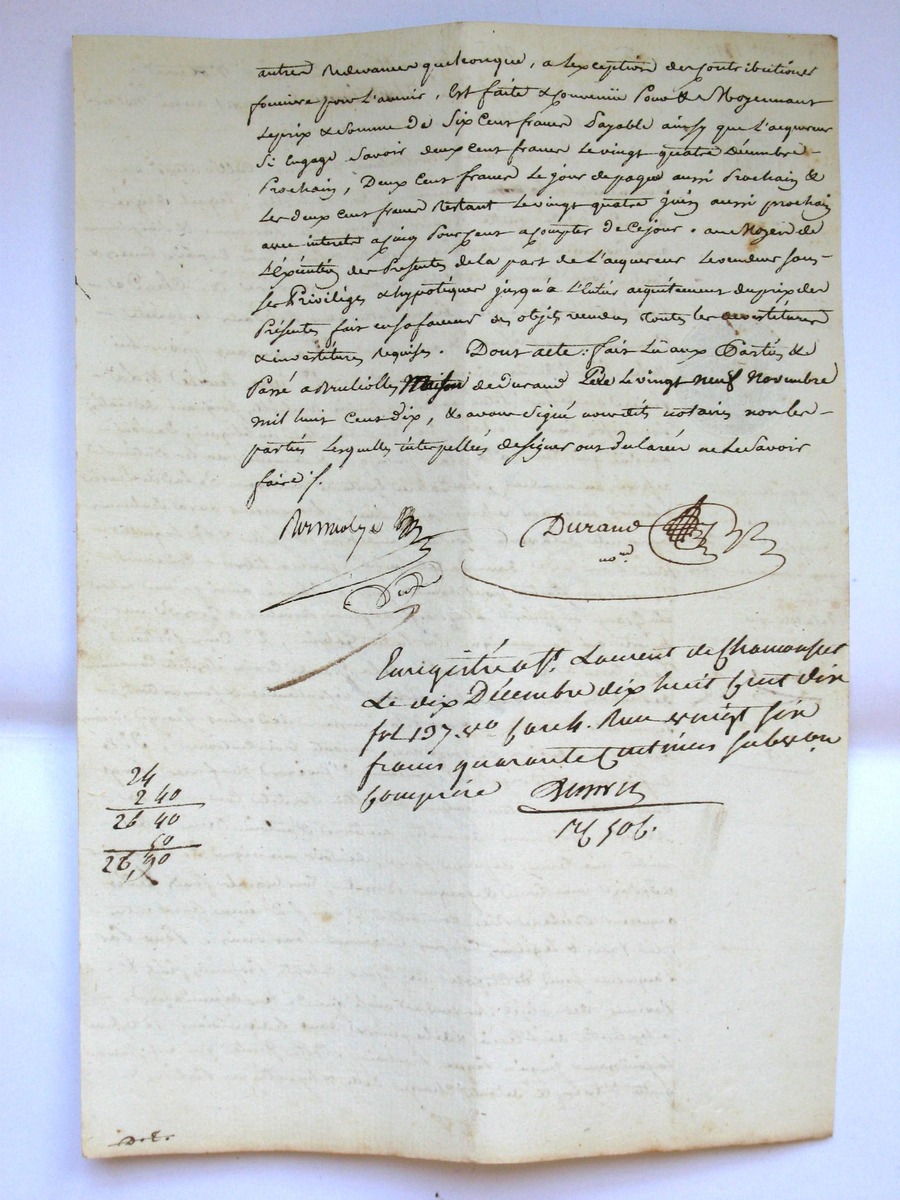 autres Redevances quelconque, a lexception des contributions
fonciere pour L'avenir, Est faite & convenüe Pour & Moyennant
Le prix & somme de Six Cent francs Payable ainsy que L'acquereur
Si Engage Savoir deux cent francs Le vingt quatre Décembre
Prochain, Deux Cent francs Le jour de paques aussi Prochain &
Les deux cent francs Restant Le vingt quatre juin aussi prochain
avec interets a cinq Pour cent a compter de Ce jour. au Moyen de
L'éxécution des Présentes de la part de L'acquereur Le vendeur sous
Ses Priviléges & hypotéques jusqu'a L'Entier acquitement du prix des
Présentes fait en sa faveur des objets vendus toutes les devestitures
& investitures Requises. Dont acte: fait Lû aux Parties &
Passé a Brulliolles Maison de Durand Pere Le vingt neuf Novembre
mil huit Cent dix, & avons Signé nousdits notaires non les
parties Lesquelles interpellées de signer ont declarées ne Le Savoir
faire ./.
Durand
no.re
Enregistré a St. Laurent de Chamousset
Le dix Décembre dix huit Cent dix
fol 197 vo Case 4. Reçu vingt six
francs quarante Centimes subvon
Comprise
24
2 40
26 40
50
26,90